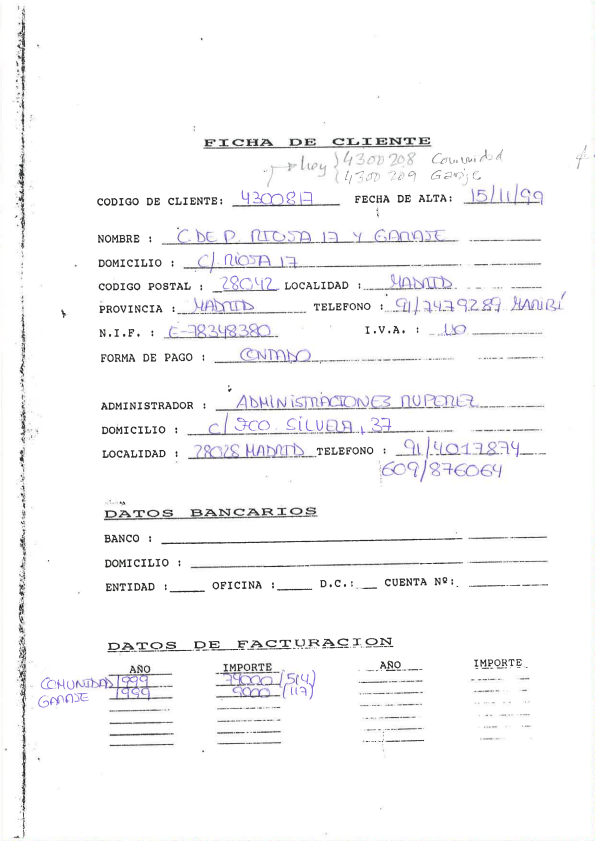 FICHA DE CLIENTE
hoy 4300208 Comunidad
4300209 Garaje
CODIGO DE CLIENTE: 4300817 FECHA DE ALTA: 15/11/99
NOMBRE : C. DE P. RIOJA 17 Y GARAJE
DOMICILIO : C/ RIOJA 17
CODIGO POSTAL : 28042 LOCALIDAD : MADRID
PROVINCIA : MADRID TELEFONO : 91/7479289
N.I.F. : E-78348380 I.V.A. :
FORMA DE PAGO : CONTADO
ADMINISTRADOR : ADMINISTRACIONES RUPEREZ
DOMICILIO : C/ FCO. SILVELA, 37
LOCALIDAD : 28028 MADRID TELEFONO : 91/4017874
609/876064
DATOS BANCARIOS
BANCO :
DOMICILIO :
ENTIDAD : OFICINA : D.C.: CUENTA Nº:
DATOS DE FACTURACION
AÑO IMPORTE AÑO IMPORTE
COMUNIDAD 1999 79000 (514)
GARAJE 1999 9000 (117)